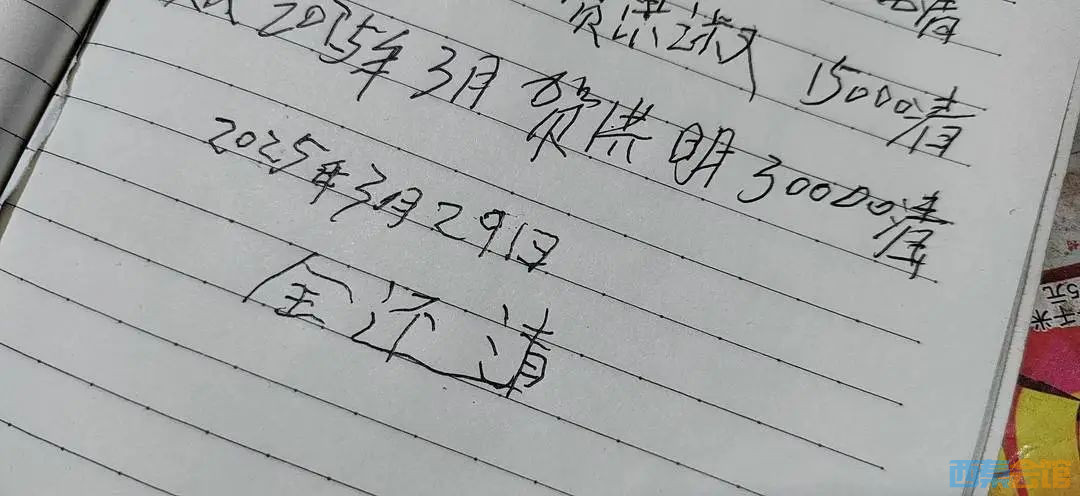 清
贺洪 15000清
2025年3月 贺洪明 30000清
2025年3月29日
全还清
千米
5元